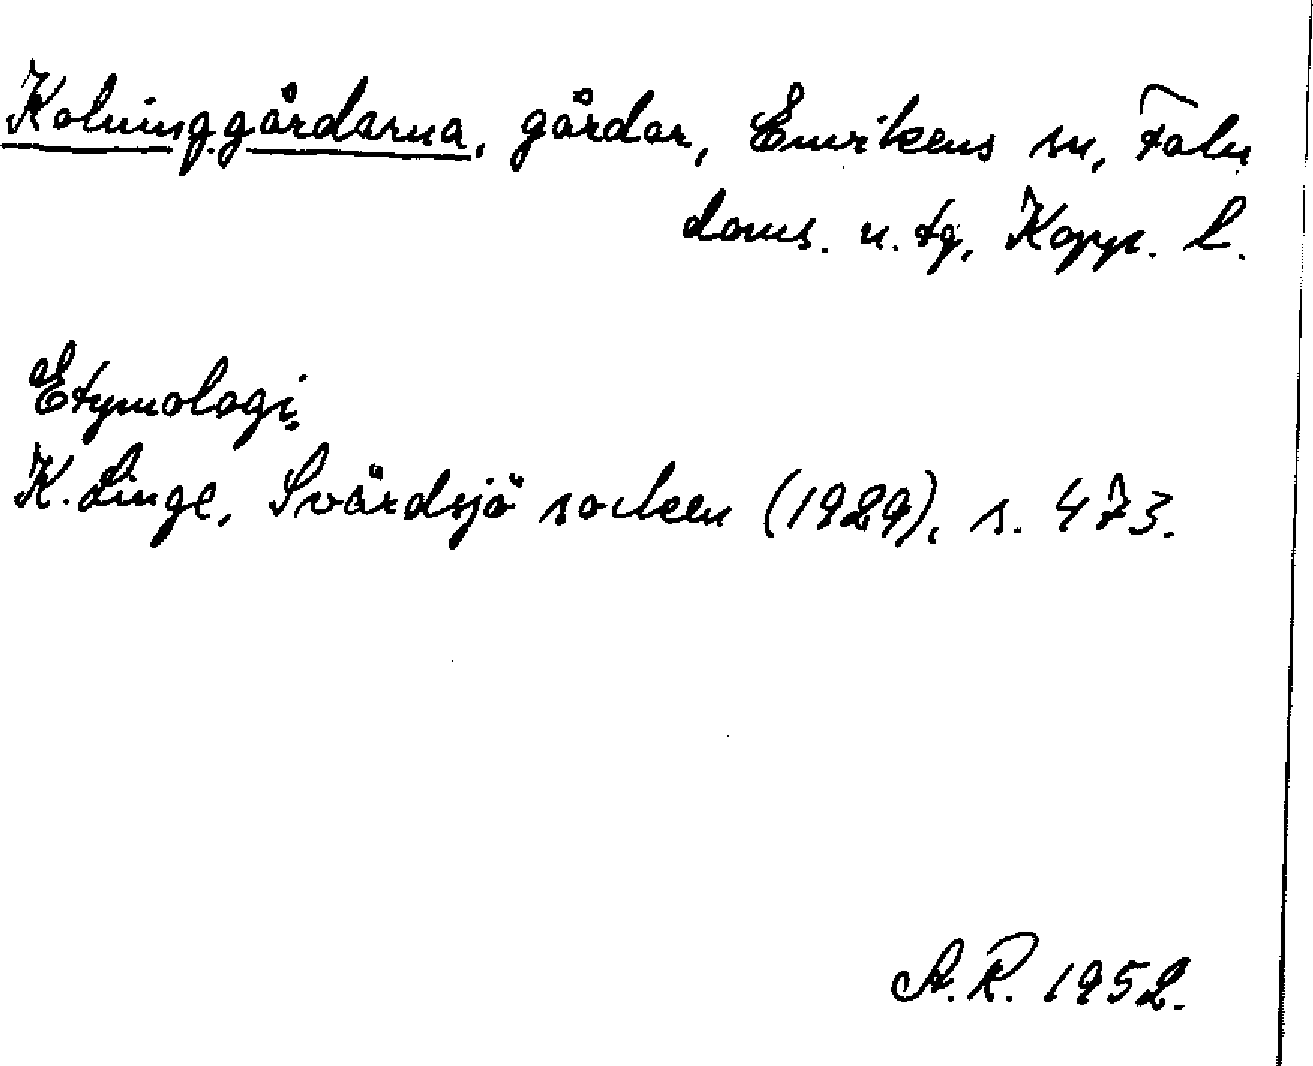 Kolninggårdarna, gårdar, Envikens sn, Falu
doms. n. tg, Kopp. l.
Etymologi
K. Linge, Svärdsjö socken (1929), s. 473.
A.R. 1952.